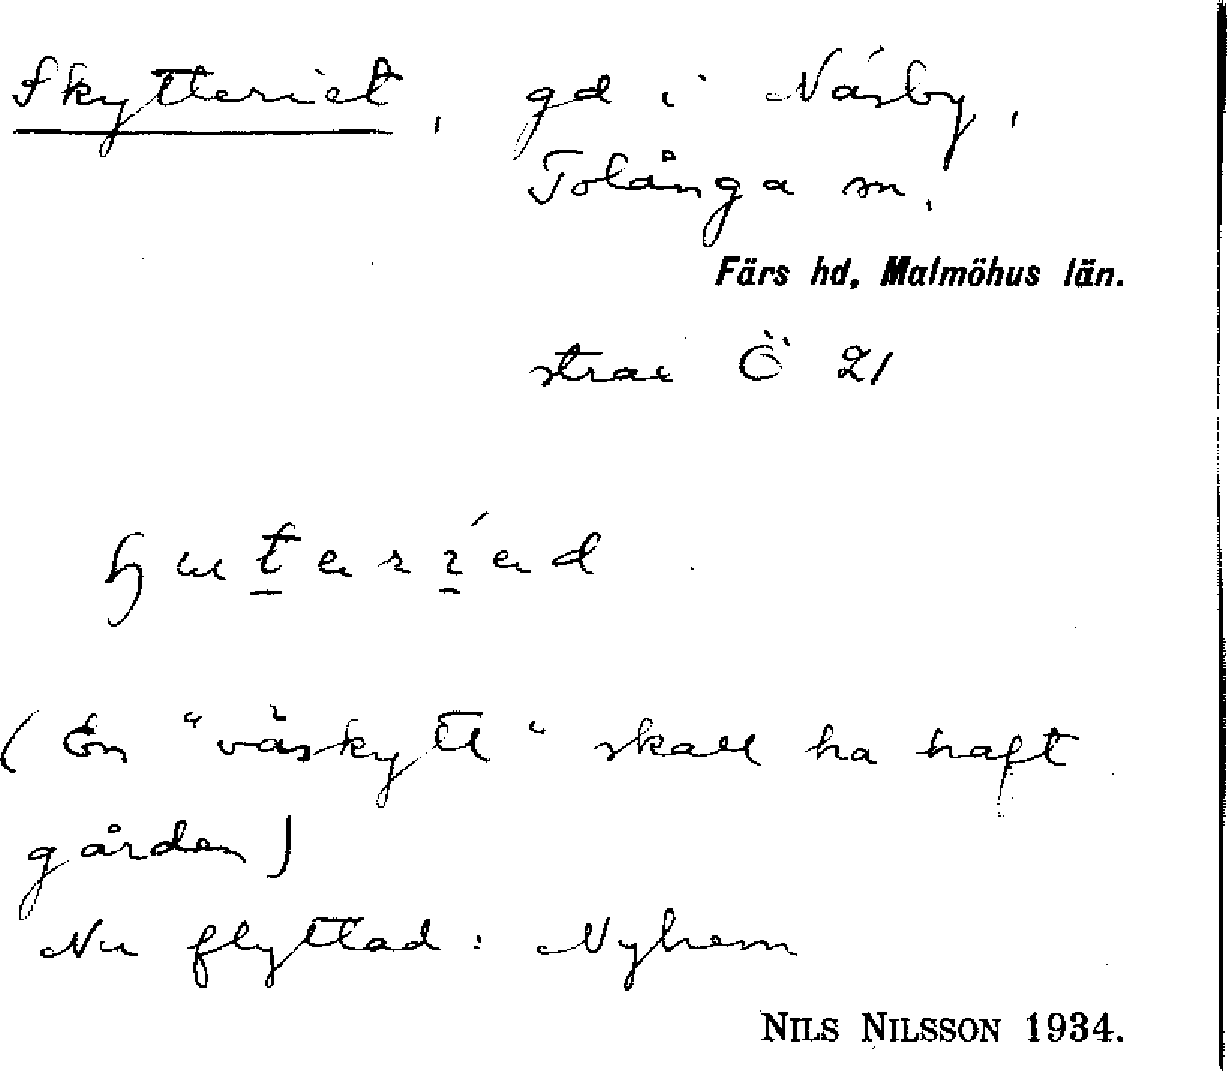 Skytteriet, gd i Näsby,
Tolånga sn.
Färs hd, Malmöhus län.
strax Ö 21
(En "väskytt" skall ha haft
gården)
Nu flyttad: Nyhem
NILS NILSSON 1934.